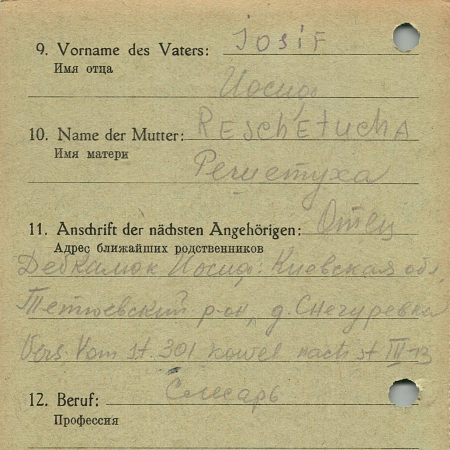 9. Vorname des Vaters: Josif
Имя отца
Иосиф
10. Name der Mutter: REschEtuchA
Имя матери
Решетуха
11. Anschrift der nächsten Angehörigen: Отец
Адрес ближайших родственников
Иосиф: Киевская обл,
Тетиевский р-он, д. Снегуревка
Vers. Vom st. 301 Kowel nach st III-B
12. Beruf: Слесарь
Профессия